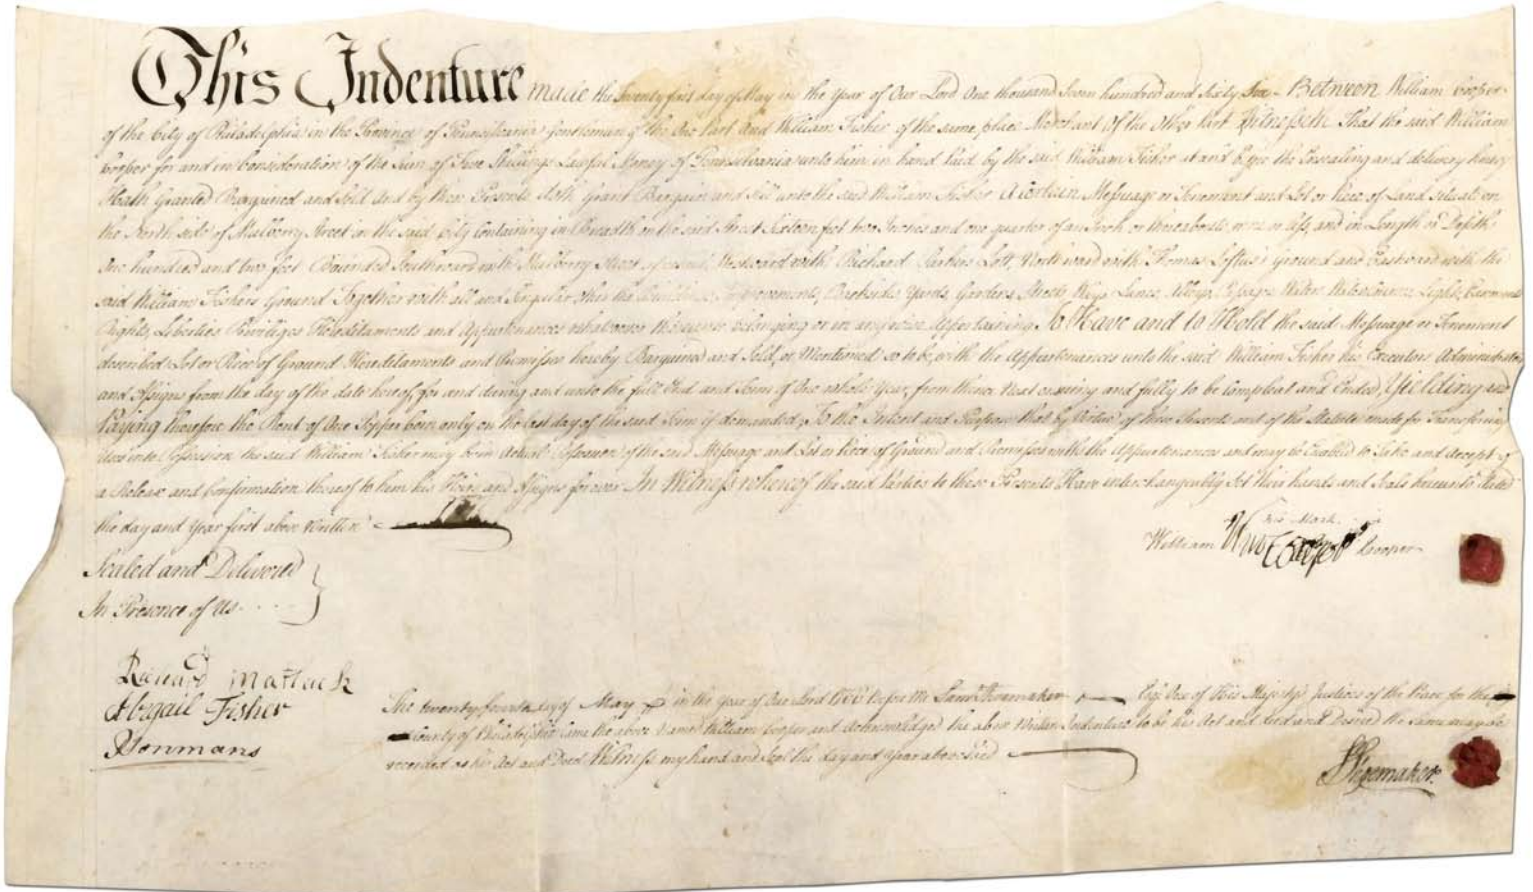 This Indenture made the twenty first day of May in the Year of Our Lord One thousand Seven hundred and Sixty Six Between William Cooper
of the City of Philadelphia in the Province of Pennsilvania Gentleman of the One Part And William Fisher of the same place Merchant Of the Other Part Witnesseth That the said William
Cooper for and in Consideration of the Sum of Five Shillings Lawful Money of Pennsylvania unto him in hand Paid by the said William Fisher at and before the Ensealing and delivery hereof
Hath Granted Bargained and Sold and by these Presents doth Grant Bargain and Sell unto the said William Fisher A Certain Messuage or Tenement and Lot or Piece of Land Situate on
the North side of Mulberry Street in the said City Containing in Breadth on the said Street Sixteen feet two Inches and one quarter of an Inch or thereabouts more or less, and in Length or Depth
One hundred and two feet Bounded Southward with Mulberry Street Westward with Richard Parkers Lott, Northward with Thomas Loftus's Ground and Eastward with the
said William Fishers Ground Together with all and Singular other the Buildings Improvements, Yards, Gardens, Streets, Ways, Lanes, Alleys, Passages Waters Watercourses Lights, Easments
Rights, Liberties Priviliges Hereditaments and Appurtenances whatsoever thereunto belonging or in any wise Appertaining To Have and to Hold the said Messuage or Tenement
described Lot or Piece of Ground Hereditaments and Premisses hereby Bargained and Sold, or Mentioned so to be, with the Appurtenances unto the said William Fisher his Executors Administrators
and Assigns from the day of the date hereof, for and during and unto the full End and Term of One whole Year, from thence Next ensuing and fully to be Compleat and Ended, Yielding and
Paying therefore the Rent of One Pepper Corn only on the last day of the said Term if demanded, To the Intent and Purpose that by Virtue of these Presents and of the Statute made for Transferring
Uses into Possession the said William Fisher may be in Actual Possession of the said Messuage and Lot or Piece of Ground and Premisses with the Appurtenances and may be Enabled to Take and Accept of
a Release and Confirmation thereof to him his Heirs and Assigns forever In Witness whereof the said Parties to these Presents Have interchangeably Set their hands and Seals hereunto Dated
the day and Year first above Written
William his Mark Cooper
Sealed and Delivered
In Presence of Us
Richard Matlack
Abigail Fisher
Yonmans
The twenty day of May in the Year of Our Lord 1766 Before Me Shoemaker Esqr One of His Majestys Justices of the Peace for the
County of Philadelphia Came the above Named William Cooper and Acknowledged the above Written Indenture to be his Act and deed and Desired the same may be
recorded as his Act and Deed Witness my hand and Seal the day and Year abovesaid
Shoemaker